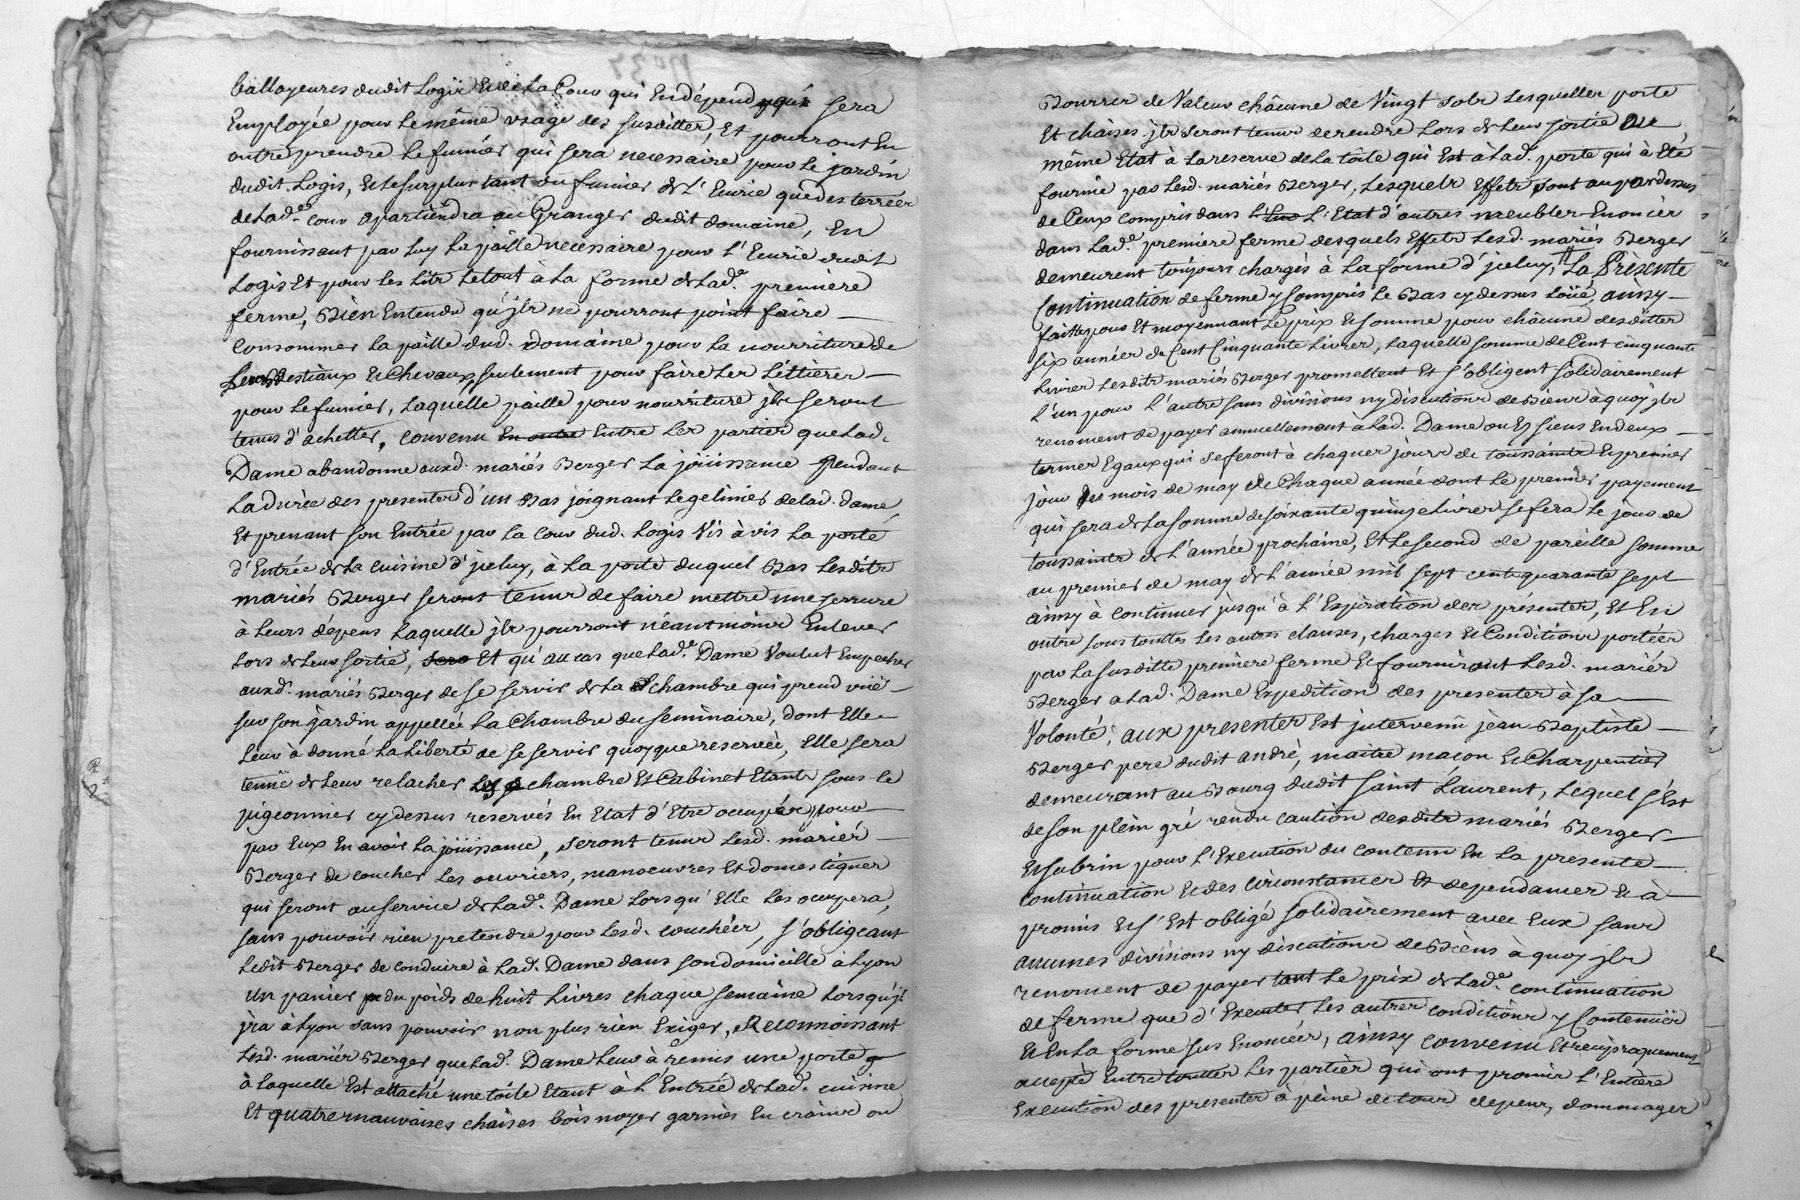 ballayeures dudit Logis Et de La Cour qui En dépend qui sera
Employée pour le même usage des susdittes, Et pourront En
outre prendre Le fumier qui sera necessaire pour Le jardin
dudit Logis, Et Le surplus tant du fumier de L'Ecurie que des terrées
de Lad.e cour apartiendra au Granger dudit domaine, En
fournissant par Luy La paille necessaire pour L'Ecurie dudit
Logis Et pour les Lits Le tout à La forme de Lad.e premiere
ferme, Bien Entendu qu'jls ne pourront point faire
consommer La paille dud. domaine pour La nourriture de
Leurs Bestiaux Et Chevaux, seulement pour faire Les Littieres
pour Le fumier, Laquelle paille pour nourriture jls seront
tenus d'achetter, convenu En outre Entre Les parties que Lad.
Dame abandonne auxd. mariés Berger La joüissance pendant
La durée des presentes d'un Bas joignant Le gelinier de Lad. dame,
Et prenant son Entrée par La Cour dud. Logis Vis à vis La porte
d'Entrée de La cuisine d'jceluy, à La porte duquel Bas Lesdits
mariés Berger seront tenus de faire mettre une serrure
à Leurs dépens Laquelle jls pourront néantmoins Enlever
Lors de Leur sortie, Et qu'au cas que Lad.e Dame Voulut Empecher
auxd. mariés Berger de se servir de La chambre qui prend vüe
sur son jardin appellée La Chambre du seminaire, dont Elle
Leur à donné La Liberté de se servir quoyque reservée, Elle sera
tenüe de Leur relacher Les chambre Et Cabinet Etants sous le
pigeonnier cy dessus reservés En Etat d'Etre occupés pour
par Eux En avoir La joüissance, seront tenus Lesd. mariés
Berger de coucher Les ouvriers, manoeuvres Et domestiques
qui seront au service de Lad.e Dame Lorsqu'Elle Les occupera,
sans pouvoir rien pretendre pour Lesd. couchées, s'obligeant
Ledit Berger de conduire à Lad. Dame dans son domicille à Lyon
un panier du poids de huit Livres chaque semaine Lorsqu'jl
jra à Lyon sans pouvoir non plus rien Exiger, Reconnoissant
Lesd. mariés Berger que Lad. Dame Leur à remis une porte
à Laquelle Est attaché une toile Etant à L'Entrée de Lad. cuisine
Et quatre mauvaises chaises bois noyer garnies En crains ou
Bourres de Valeur châcune de Vingt sols Lesquelles porte
Et chaises jls seront tenus de rendre Lors de Leur sortie au
même Etat à La reserve de La toile qui Est à Lad. porte qui à Eté
fournie par Lesd. mariés Berger, Lesquels Effets sont au par dessus
de Ceux compris dans L'Etat d'autres meubles Enoncés
dans Lad.e premiere ferme desquels Effets Lesd. mariés Berger
demeurent toujours chargés à La forme d'jceluy, La Présente
Continuation de ferme y Compris Le Bas cy dessus Loüé, ainsy
faitte pour Et moyennant Le prix Et somme pour châcune desdittes
six années de Cent Cinquante Livres, Laquelle somme de Cent cinquante
Livres Lesdits mariés Berger promettent Et s'obligent solidairement
L'un pour L'autre sans divisions ny discutions de Biens à quoy jls
renoncent de payer annuellement à Lad. Dame ou Es siens En deux
termes Egaux qui se feront à chaques jours de toussaints Et premier
jour du mois de may de Chaque année dont Le premier payement
qui sera de La somme de soixante quinze Livres se fera Le jour de
toussaints de L'année prochaine, Et Le second de pareille somme
au premier de may de L'année mil sept cent quarante sept
ainsy à continuer jusqu'à L'Expiration des présentes, Et En
outre sous touttes Les autres clauses, charges Et Conditions portées
par La susditte premiere ferme Et fourniront Lesd. mariés
Berger a Lad. Dame Expedition des presentes à sa
Volonté; aux presentes Est jntervenu jean Baptiste
Berger pere dudit andré, maitre macon Et Charpentier
demeurant au Bourg dudit saint Laurent, Lequel s'Est
de son plein gré rendu caution desdits mariés Berger
Et subrin pour L'Execution du contenu En La presente
continuation Et des circonstances Et dependances Et à
promis Et s'Est obligé solidairement avec Eux sans
aucunes divisions ny discutions de Biens à quoy jls
renoncent de payer tant Le prix de Lad.e continuation
de ferme que d'Executer Les autres conditions y Contenües
Et En La forme sus Enoncées, ainsy convenu Et reciproquement
accepté Entre touttes Les parties qui ont promis L'Entiere
Execution des presentes à peine de tous depens, dommages